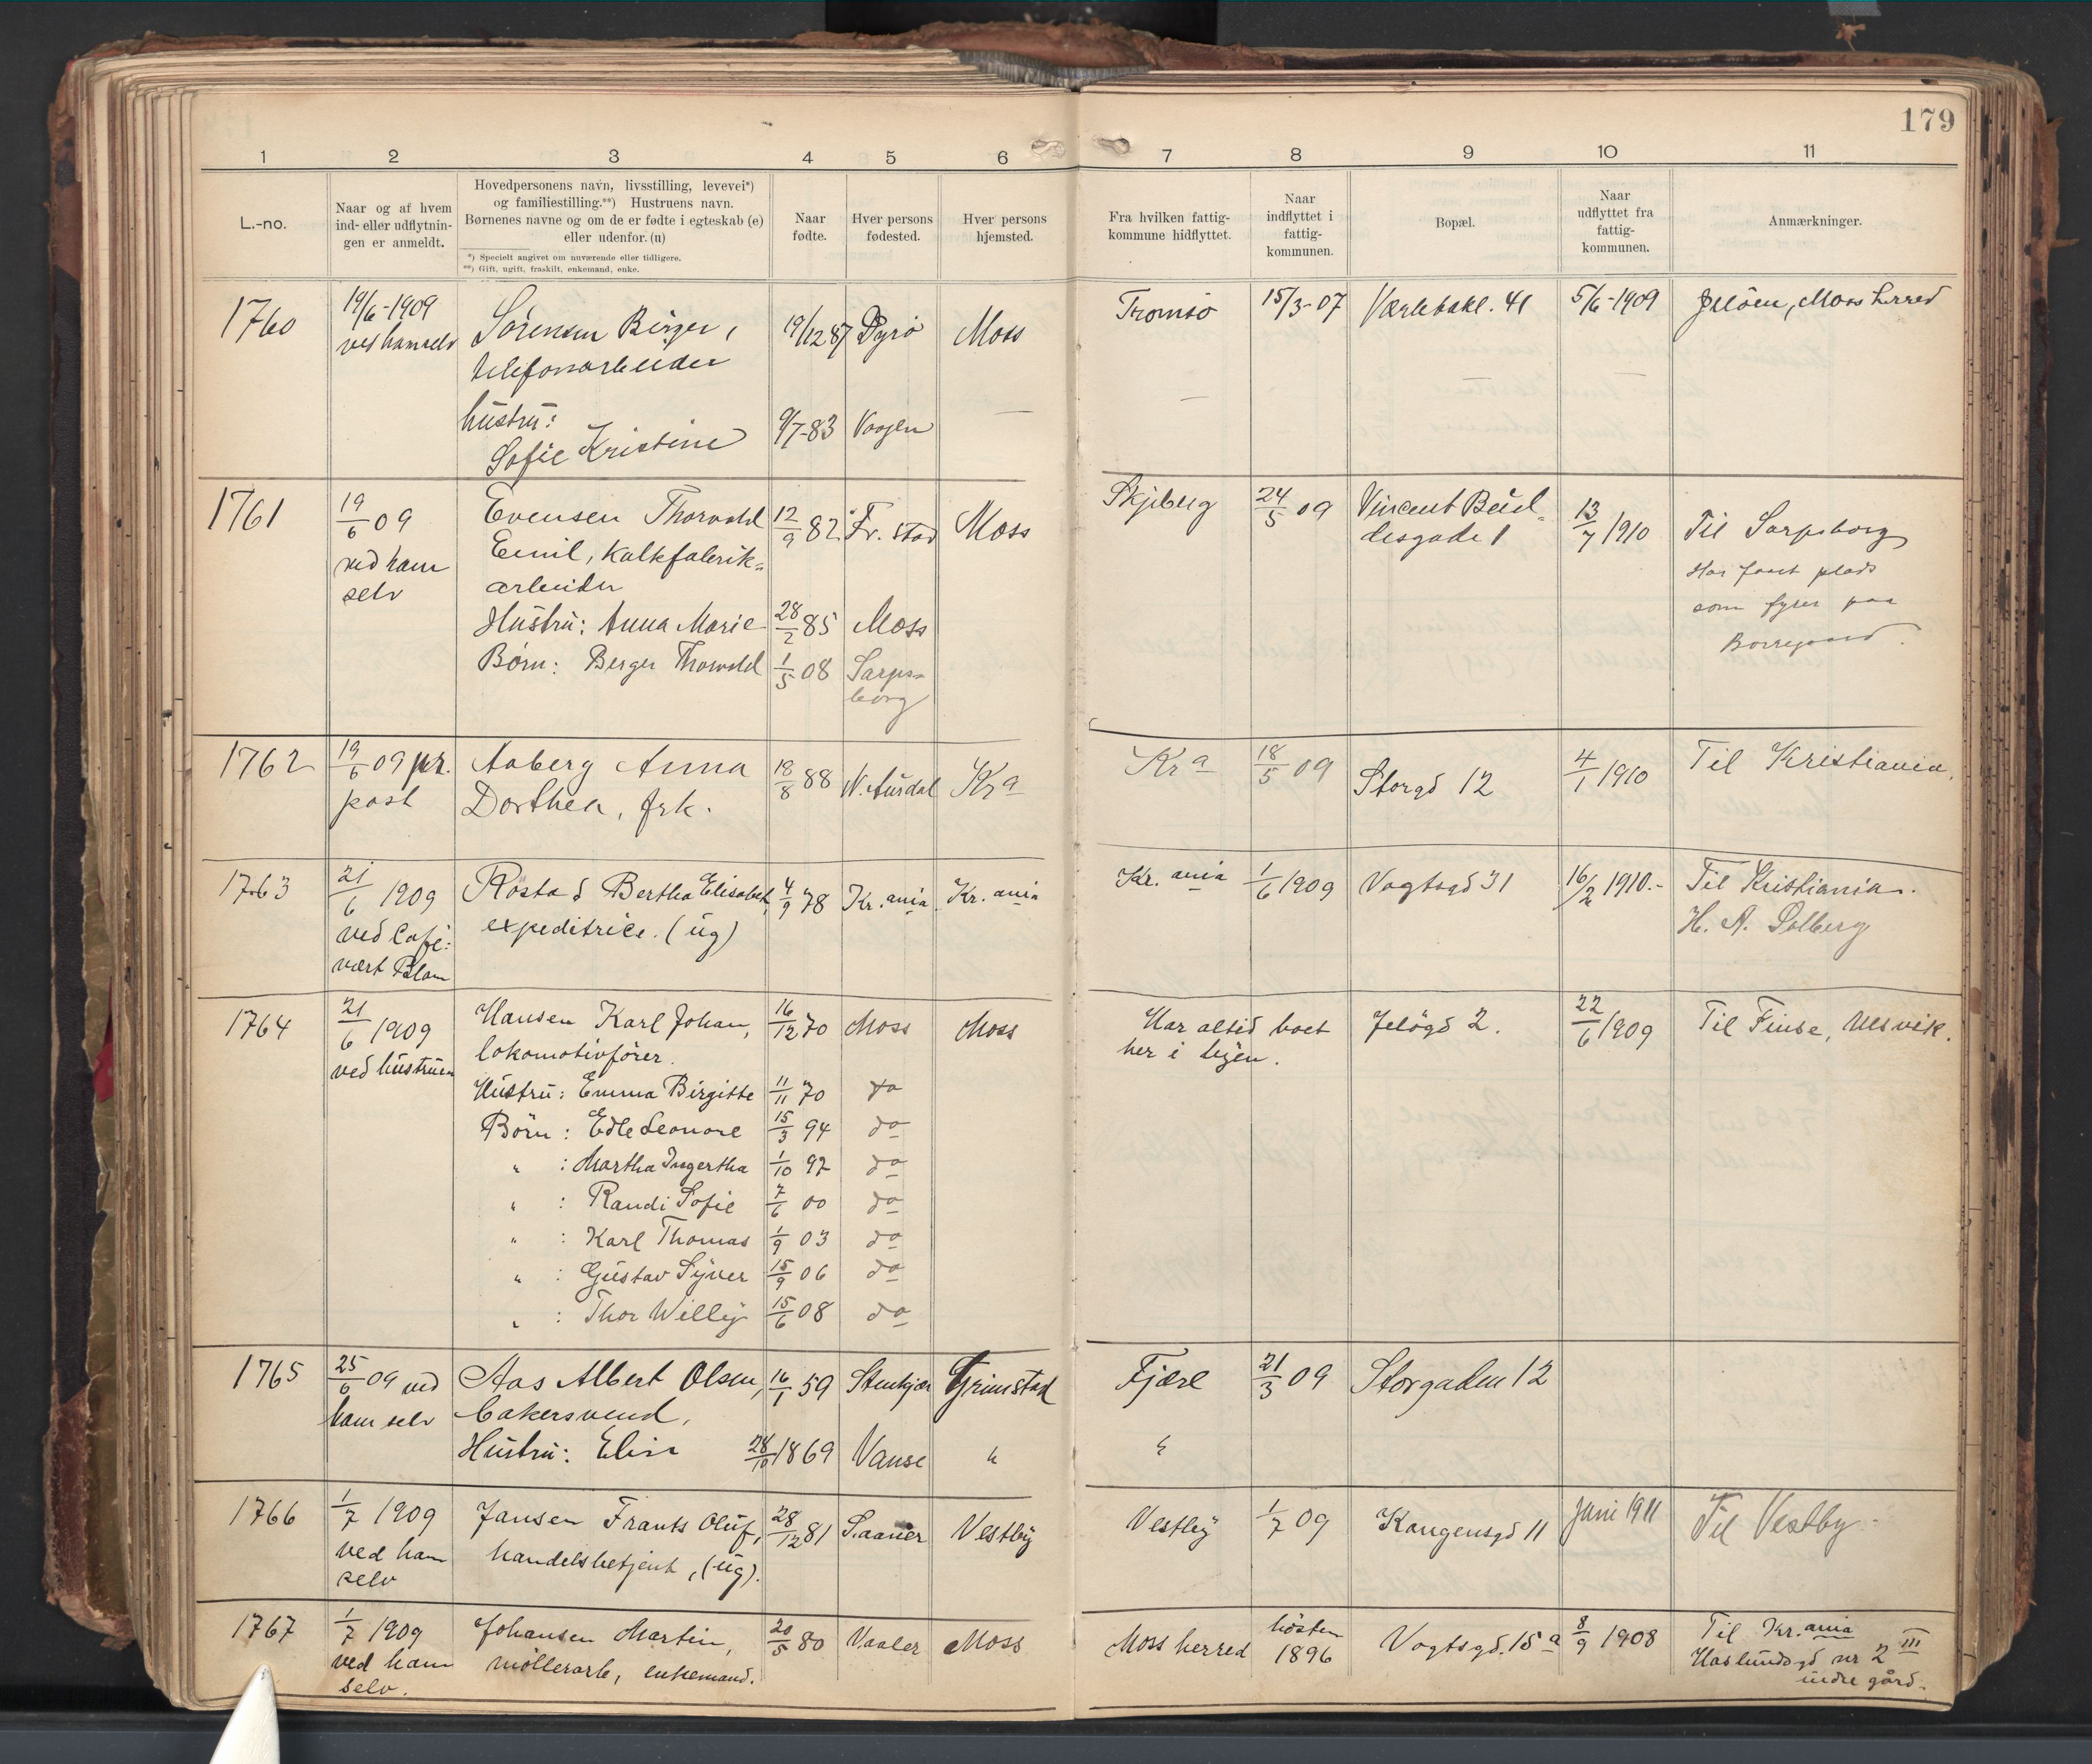 179
1 2 3 4 5 6 7 8 9 10 11
L.-no.
Naar og af hvem
ind- eller udflytnin-
gen er anmeldt.
Hovedpersonens navn, livsstilling, levevei*)
og familiestilling.**) Hustruens navn.
Børnenes navne og om de er fødte i egteskab (e)
eller udenfor. (u)
*) Specielt angivet om nuværende eller tidligere.
**) Gift, ugift, fraskilt, enkemand, enke.
Naar
fødte.
Hver persons
fødested.
Hver persons
hjemsted.
Fra hvilken fattig-
kommune hidflyttet.
Naar
indflyttet i
fattig-
kommunen.
Bopæl.
Naar
udflyttet fra
fattig-
kommunen.
Anmærkninger.
1760 19/6-1909 Sørensen Birger, 19/12 87 Dyrø Moss Tromsø 15/3-07 Værlebakl. 41 5/6-1909 Jeløen, Moss herred
ved ham selv
telefonarbeider
hustru:
Sofie Kristine 9/7-83 Vaagen —
1761 19/6 09 Evensen Thorvald 12/9 82 Fr. stad Moss Skjeberg 24/5 09 Vincent Bud-
desgade 1 13/7 1910 Til Sarpsborg
ved ham Emil, Kalkfabrik- Har faaet plads
selv arbeider som fyrer paa
Hustru: Anna Marie 28/2 85 Moss Borregaard.
Børn: Berger Thorvald 1/5 08 Sarps-
borg
1762 19/6 09 pr. Aaberg Anna 18/8 88 N. Aurdal Kra Kra 18/5 09 Storgd 12 4/1 1910 Til Kristiania.
post Dorthea, frk.
1763 21/6 1909 Rosta d Bertha Elisabet, 4/9 78 Kr.ania Kr.ania Kr.ania 1/6 1909 Vogtsgd 31 16/2 1910.- Til Kristiania.
ved Café- expeditrice. (ug) H. A. Solberg
vært Blom
1764 21/6 1909 Hansen Karl Johan, 16/12 70 Moss Moss Har altid boet Jeløgd 2. 22/6 1909 Til Finse, Ulsvik.
ved hustruen lokomotivfører. her i byen.
Hustru: Emma Birgitte 11/11 70 do
Børn: Edle Leonore 15/3 94 do
" : Martha Ingertha 1/10 97 do
" : Randi Sofie 7/6 00 do
" : Karl Thomas 1/9 03 do
" : Gustav Syver 15/9 06 do
" : Thor Willy 15/6 08 do
1765 25/6 09 ved Aas Albert Olsen, 16/1 59 Stenkjær Grimstad Fjære 21/3 09 Storgaden 12
ham selv bakersvend,
Hustru: Elise 28/10 1869 Vanse " "
1766 1/7 1909 Jansen Frants Oluf, 28/12 81 Saaner Vestby Vestby 1/7 09 Kongensgd 11 Juni 1911 Til Vestby.
ved ham handelsbetjent, (ug).
selv
1767 1/7 1909 Johansen Martin, 20/5 80 Vaaler Moss Moss herred høsten
1896 Vogtsgd. 15 a 8/9 1908 Til Kr.ania
ved ham møllerarb, enkemand. Haslundsgd nr 2 III
selv. indre gård.